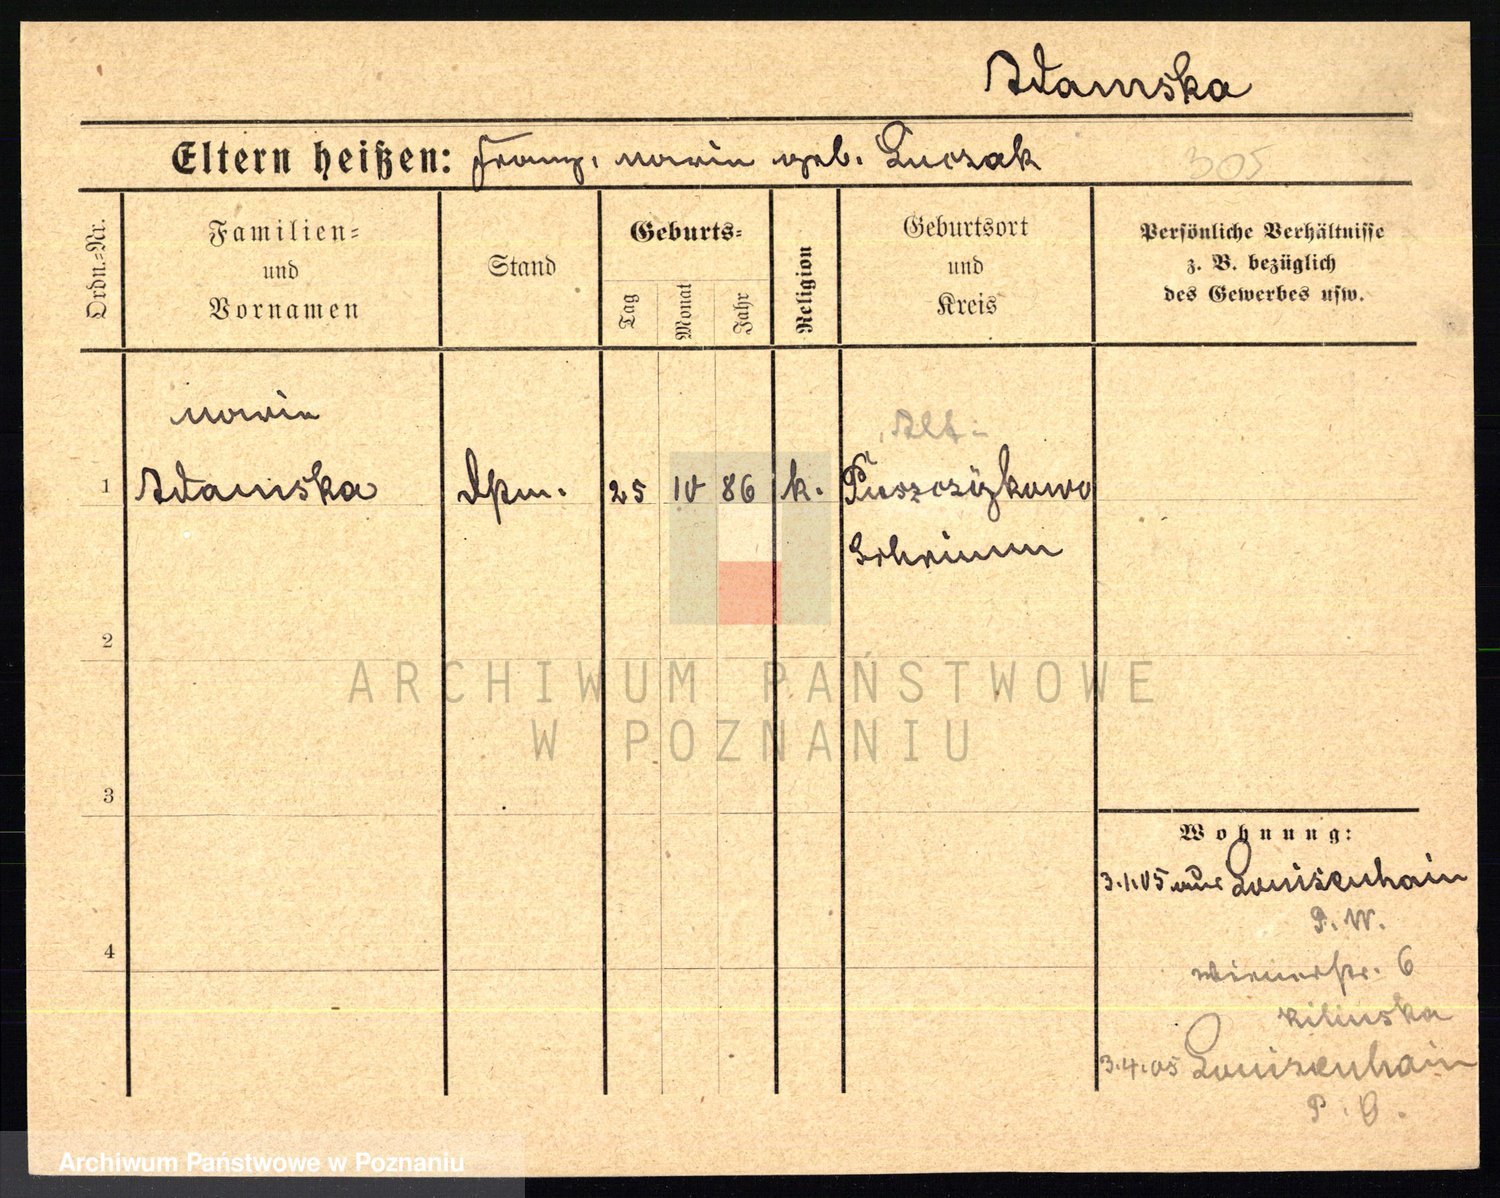 Adamska
Eltern heißen: Franz, Marie geb. Luczak
305
Ordn.-Nr.
Familien-
und
Vornamen
Stand
Geburts-
Tag
Monat
Jahr
Religion
Geburtsort
und
Kreis
Persönliche Verhältnisse
z. B. bezüglich
des Gewerbes usw.
Marie
Alt-
1 Adamska 25 10 86 k. Puszczykowo
Schrimm
2
ARCHIWUM PAŃSTWOWE
W POZNANIU
3
Wohnung:
3.1.05 aus Louisenhain
P. W.
4
Wienerstr. 6
Kilinska
3.4.05 Louisenhain
P. O.
Archiwum Państwowe w Poznaniu